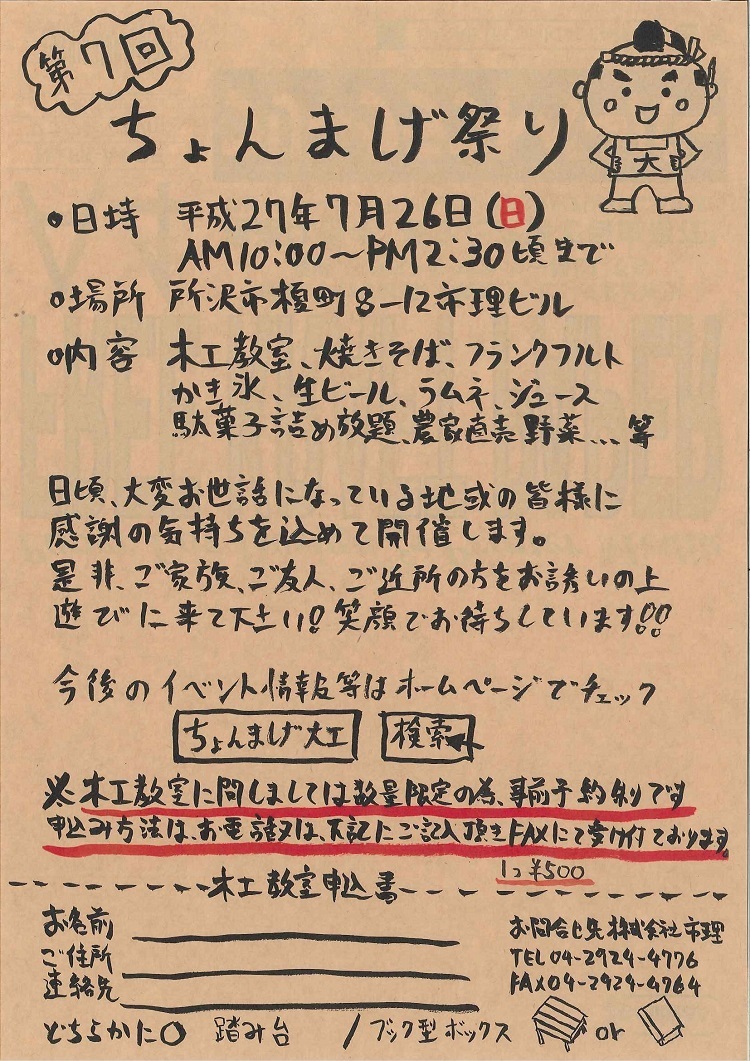 第7回
ちょんまげ祭り
大
○日時 平成27年7月26日(日)
AM10:00〜PM2:30頃まで
○場所 所沢市榎町8-12市理ビル
○内容 木工教室、焼きそば、フランクフルト
かき氷、生ビール、ラムネ、ジュース
駄菓子詰め放題、農家直売野菜...等
日頃、大変お世話になっている地域の皆様に
感謝の気持ちを込めて開催します。
是非、ご家族、ご友人、ご近所の方をお誘いの上
遊びに来て下さい!笑顔でお待ちしています!!
今後のイベント情報等はホームページでチェック
ちょんまげ大工 検索
※木工教室に関しましては数量限定の為、事前予約制です
申込み方法は、お電話又は、下記にご記入頂きFAXにて受け付ております。
1つ¥500
木工教室申込書
お名前
ご住所
連絡先
どちらかに○ 踏み台 / ブック型ボックス or
お問合せ先 株式会社市理
TEL 04-2924-4776
FAX 04-2924-4764